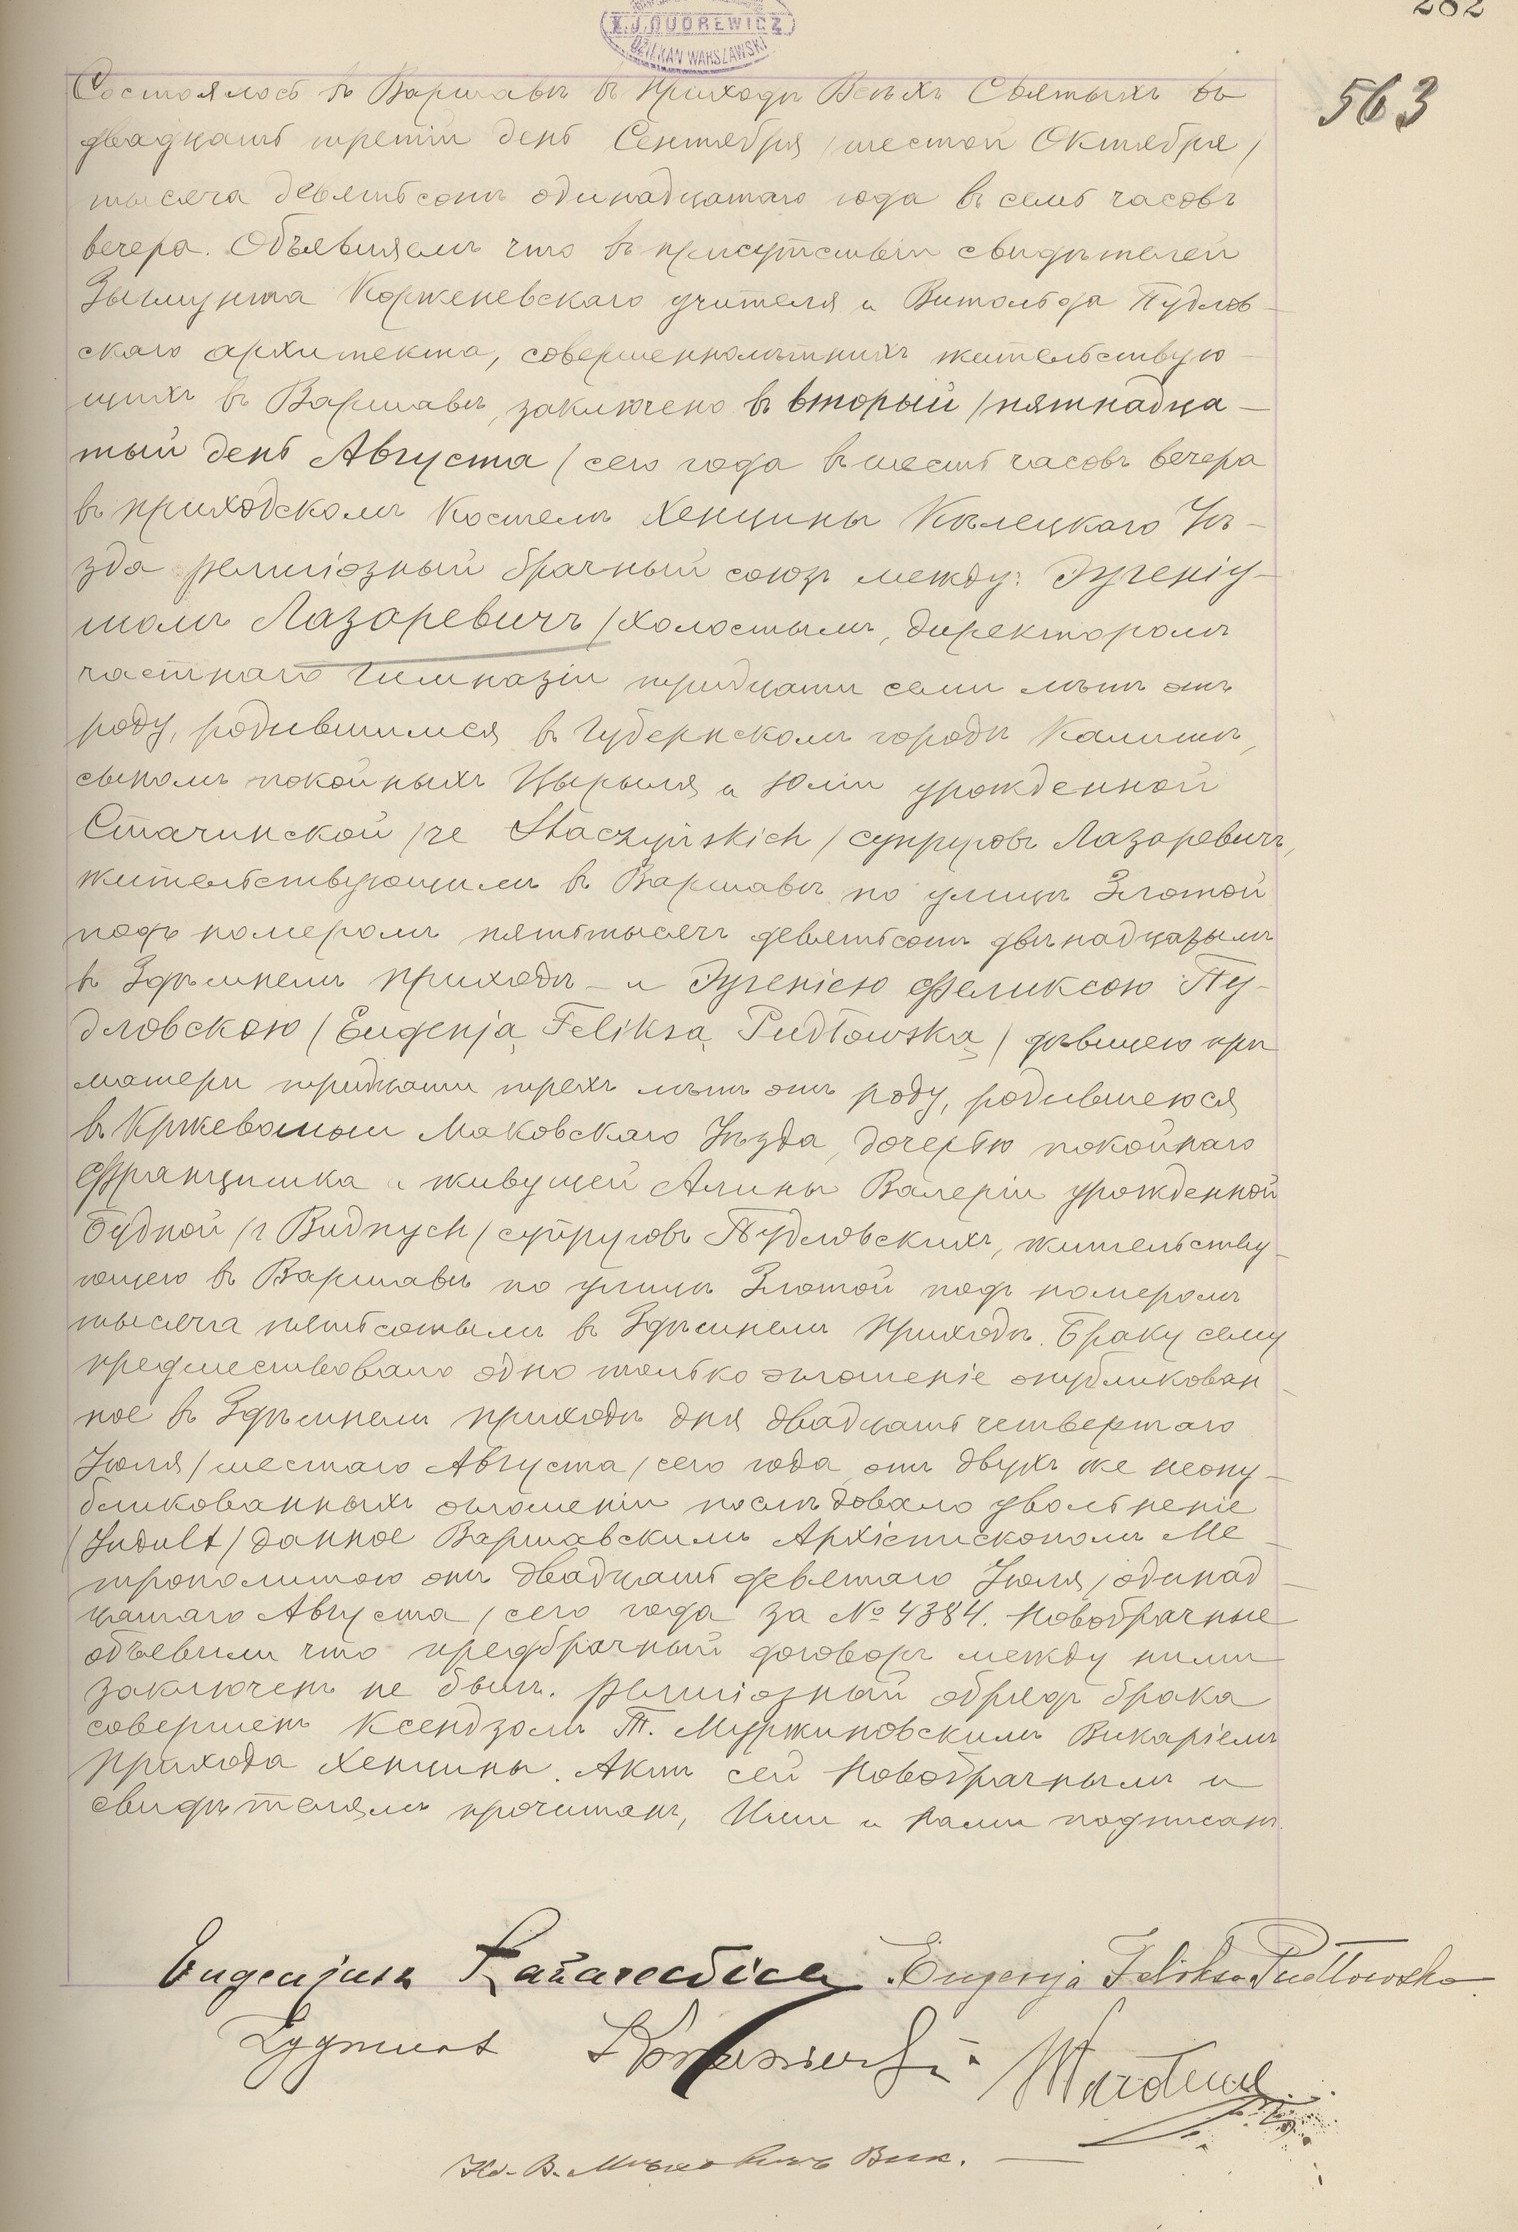 282
X.J. DUDREWICZ
DZIEKAN WARSZAWSKI
563
Состоялось въ Варшавѣ въ приходѣ Всѣхъ Святыхъ въ
двадцать третій день Сентября /шестой Октября/
тысяча девятьсотъ одинадцатаго года въ семь часовъ
вечера. Объявляемъ что въ присутствіи свидѣтелей
Зыгмунта Корженевскаго учителя и Витольда Пудлов-
скаго архитекта, совершеннолѣтнихъ жительствую-
щихъ въ Варшавѣ, заключено въ вторый /пятнадца-
тый день Августа/ сего года въ шесть часовъ вечера
въ приходскомъ костелѣ Хенцины Кѣлецкаго Уѣ-
зда религіозный брачный союзъ между: Эугеніу-
шомъ Лазаревичъ /холостымъ, директоромъ
частнаго гимназіи тридцати семи лѣтъ отъ
роду, родившимся въ Губернскомъ городѣ Калишѣ,
сыномъ покойныхъ Цырыля и Юліи урожденной
Стачинской /че Staczyńskich/ супруговъ Лазаревичъ,
жительствующимъ въ Варшавѣ по улицѣ Златой
подъ номеромъ пятьтысячъ девятьсотъ двѣнадцатымъ
въ Здѣшнемъ приходѣ - и Эугеніею Феликсою Пу-
дловскою /Eugenją Feliksą Pudłowską/ дѣвицею при
матери тридцати трехъ лѣтъ отъ роду, родившеюся
въ Маковскаго Уѣзда, дочерью покойнаго
Францишка и живущей Алины Валеріи урожденной
Будной /z Budnych/ супруговъ Пудловскихъ, жительству-
ющею въ Варшавѣ по улицѣ Златой подъ номеромъ
тысяча пятьсотымъ въ Здѣшнемъ приходѣ. Браку сему
предшествовало одно только оглошеніе опубликован-
ное въ Здѣшнемъ приходѣ дня двадцать четвертаго
Іюля /шестаго Августа/ сего года, отъ двухъ же неопу-
бликованныхъ оглошеніи послѣдовало увольненіе
/Indult/ данное Варшавскимъ Архіепископомъ Ме-
трополитою отъ двадцать девятаго Іюля /одинад-
цатаго Августа/ сего года за № 4384. Новобрачные
объявили что предбрачный договоръ между ними
заключенъ не былъ. Религіозный обрядъ брака
совершенъ Ксендзомъ Т. Муржиновскимъ Викаріемъ
прихода Хенцины. Актъ сей Новобрачнымъ и
свидѣтелямъ прочитанъ, Ими и Нами подписанъ.
Eugenjusz Łazarewicz Eugenja Feliksa Pudłowska
Zygmunt Korzeniowski